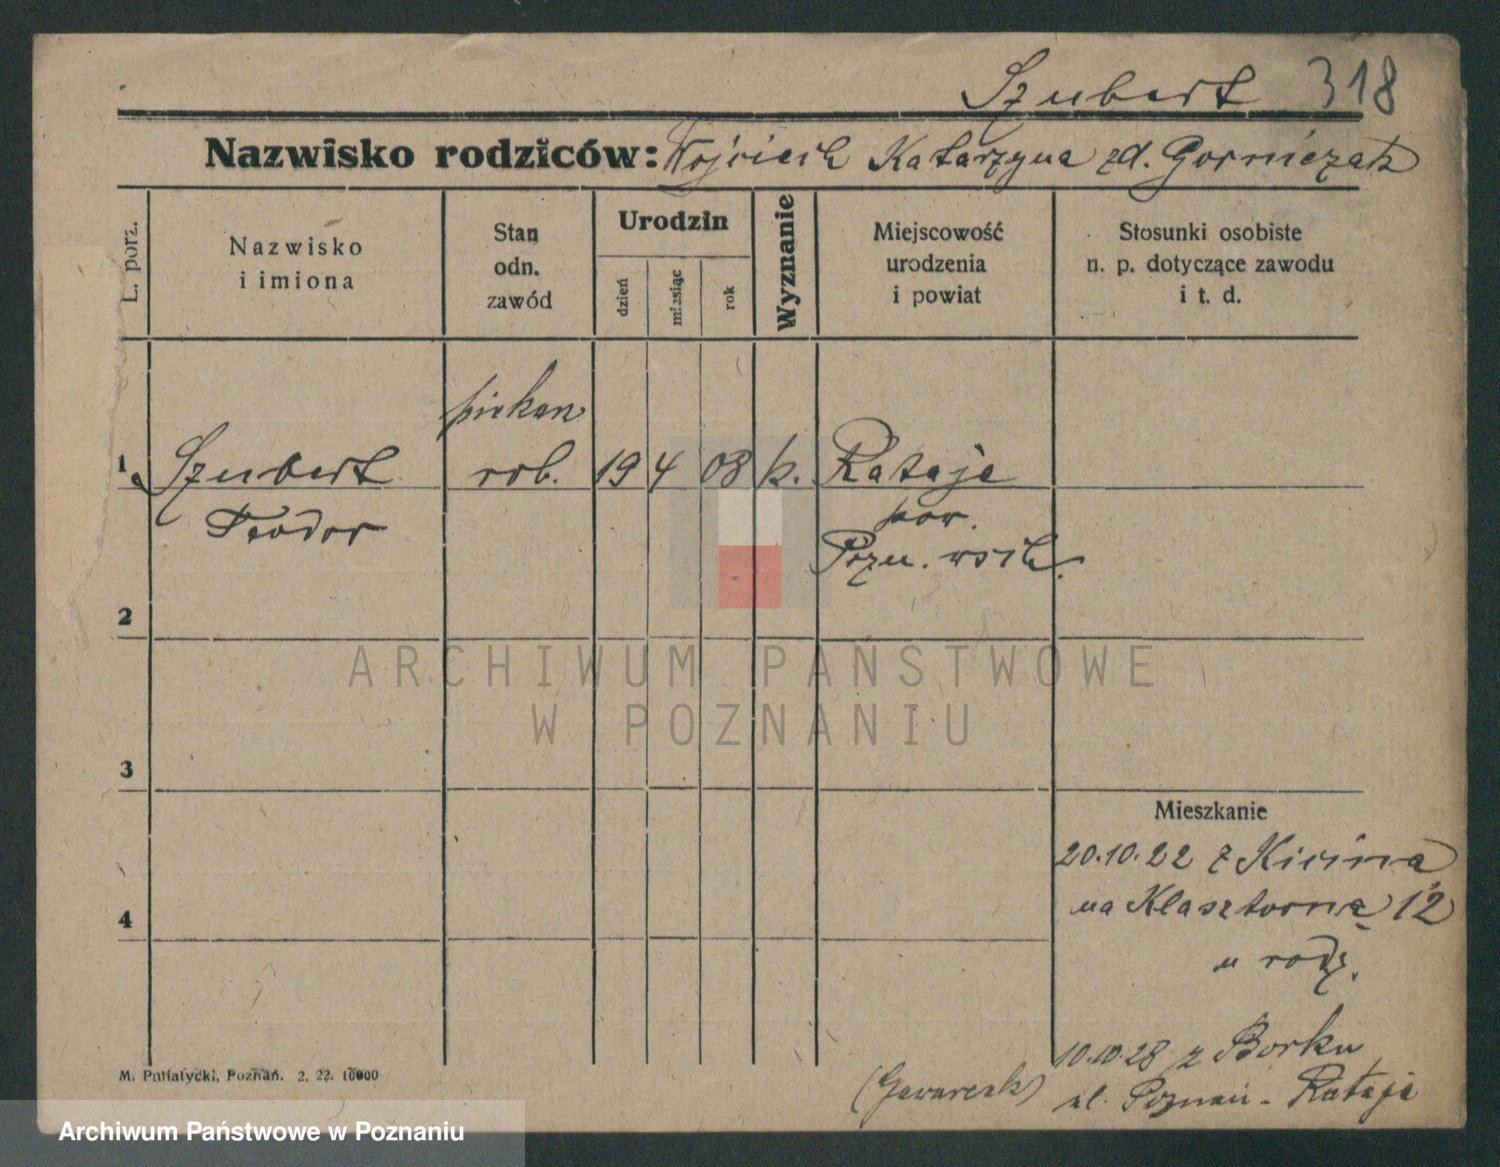 Szubert 318
Nazwisko rodziców: Wojciech Katarzyna zd. Gorniczak
L. porz.
Nazwisko
i imiona
Stan
odn.
zawód
Urodzin
dzień
miesiąc
rok
Wyznanie
Miejscowość
urodzenia
i powiat
Stosunki osobiste
n. p. dotyczące zawodu
i t. d.
1 Szubert rob. 19 4 08 k. Rataje
Teodor pow.
Pozn. wsch.
2
3
4
Mieszkanie
20.10.22 z Kicina
na Klasztorną 12
u rodz.
10.10.28 z Borku
ul. Poznań - Rataje
M. Putiatycki, Poznań. 2. 22. 10000
ARCHIWUM PAŃSTWOWE
W POZNANIU
Archiwum Państwowe w Poznaniu